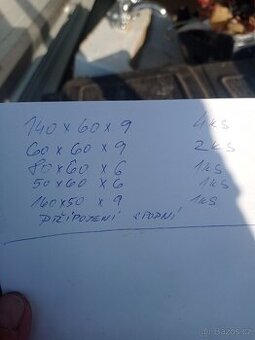 140 x 60 x 9 4ks
60 x 60 x 9 2ks
80 x 60 x 6 1ks
50 x 60 x 6 1ks
160x50 x 9 1ks
PŘIPOJENÍ SPODNÍ
Bazos.cz